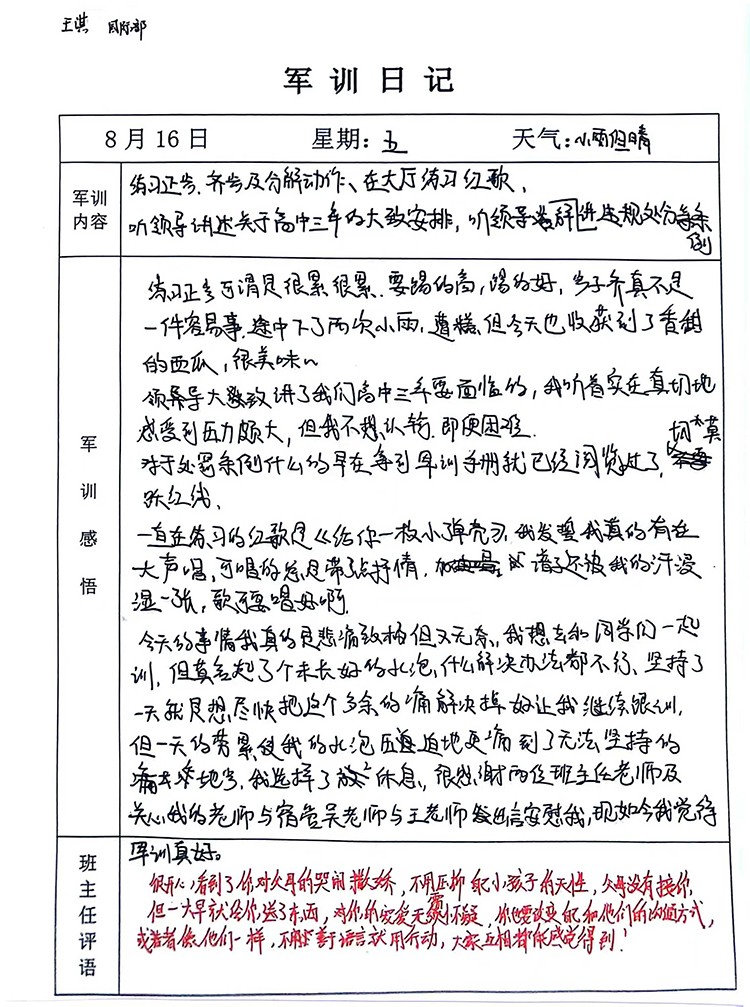 王淇 国际部
军训日记
8月16日 星期:五 天气:小雨但晴
军训内容
练习正步、齐步及分解动作、在大厅练习红歌、
听领导讲述关于高中三年的大致安排,听领导讲违规处分条例
军训感悟
练习正步可谓是很累很累.要踢的高,踢的好,步子齐真不是
一件容易事.途中下了两次小雨,遭糕.但今天也收获到了香甜
的西瓜,很美味~
领导大致讲了我们高中三年要面临的,我听着实在真切地
感受到压力颇大,但我不想认输.即便困难.
对于处罚条例什么的早在拿到军训手册就已经阅览过了,切莫
跃红线.
一直在练习的红歌是《给你一枚小弹壳》,我发誓我真的有在
大声唱,可唱的总是带了点抒情.谱子还被我的汗浸
湿一张,歌可要唱好啊.
今天的事情我真的是悲痛致极但又无奈,我想去和同学们一起
训,但真多起了个未长好的水泡,什么解决办法都不行、坚持了
一天就是想尽快把这个多余的痛解决掉好让我继续跟训,
但一天的劳累使我的水泡压迫地更痛到了无法坚持的
地步,我选择了休息,很感谢两位班主任老师及
关心我的老师与宿舍吴老师与王老师发信安慰我,现如今我觉得
军训真好。
班主任评语
很开心看到了你对父母的哭闹撒娇,不用压抑自己小孩子的天性,父母没有接你,
但一大早就给你送了东西,对你的宠爱无需怀疑,你也要改变自己和他们的沟通方式,
或者像他们一样,不用善于语言就用行动,大家互相都能感觉得到!